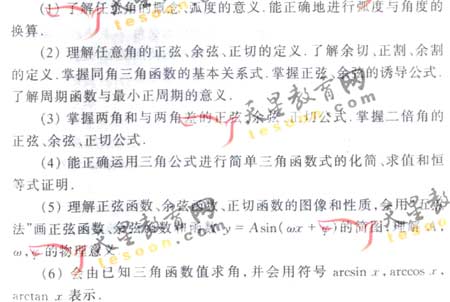 (1) 了解任意角的概念、弧度的意义.能正确地进行弧度与角度的
换算.
(2) 理解任意角的正弦、余弦、正切的定义.了解余切、正割、余割
的定义.掌握同角三角函数的基本关系式.掌握正弦、余弦的诱导公式.
了解周期函数与最小正周期的意义.
(3) 掌握两角和与两角差的正弦、余弦、正切公式.掌握二倍角的
正弦、余弦、正切公式.
(4) 能正确运用三角公式进行简单三角函数式的化简、求值和恒
等式证明.
(5) 理解正弦函数、余弦函数、正切函数的图像和性质,会用“五点
法”画正弦函数、余弦函数和函数 y = Asin(ωx + φ)的简图,理解 A,
ω,φ 的物理意义.
(6) 会由已知三角函数值求角,并会用符号 arcsin x,arccos x,
arctan x 表示.
天星教育网
tesoon.com
天星教育网
tesoon.com
天星教育网
tesoon.com